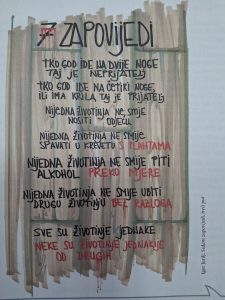 7 ZAPOVIJEDI
TKO GOD IDE NA DVIJE NOGE
TAJ JE NEPRIJATELJ
TKO GOD IDE NA ČETIRI NOGE,
ILI IMA KRILA, TAJ JE PRIJATELJ
NIJEDNA ŽIVOTINJA NE SMIJE
NOSITI ODJEĆU
NIJEDNA ŽIVOTINJA NE SMIJE
SPAVATI U KREVETU S PLAHTAMA
NIJEDNA ŽIVOTINJA NE SMIJE PITI
ALKOHOL PREKO MJERE
NIJEDNA ŽIVOTINJA NE SMIJE UBITI
DRUGU ŽIVOTINJU BEZ RAZLOGA
SVE SU ŽIVOTINJE JEDNAKE
NEKE SU ŽIVOTINJE JEDNAKIJE
OD DRUGIH